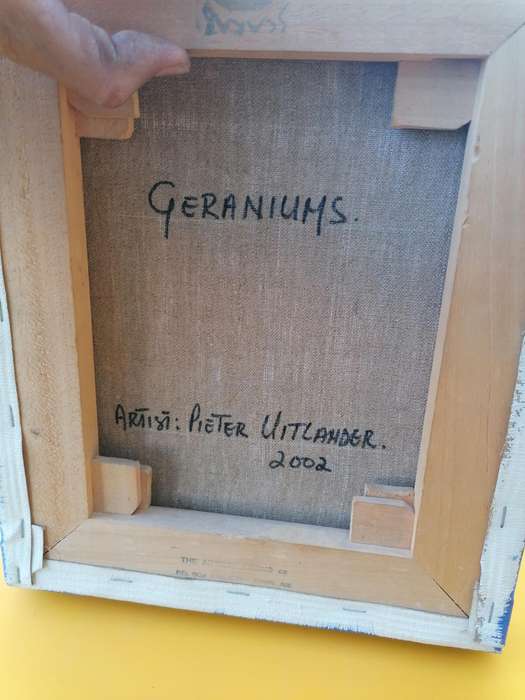 GERANIUMS.
ARTIST: PIETER UITLANDER.
2002
THE